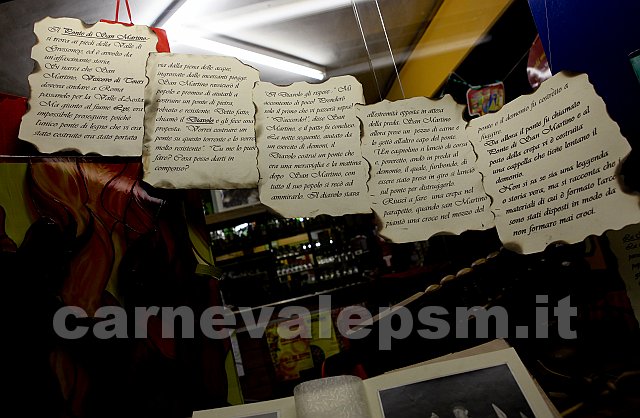 Il Ponte di San Martino
si trova ai piedi della Valle di
Gressoney, ed è avvolto da
un'affascinante storia.
Si narra che San
Martino, Vescovo di Tours
doveva andare a Roma
passando per la Valle d'Aosta
Ma giunto al fiume Lys, era
impossibile proseguire, poiché
l'unico ponte di legno che vi era
stato costruito era stato portato
via dalla piena delle acque,
ingrossate dalle incessanti piogge.
San Martino riunisce il
popolo e promise di aiutarlo a
costruire un ponte di pietra,
robusto e resistente. Detto fatto,
chiamò il Diavolo e gli fece una
proposta. "Vorrei costruire un
ponte su questo torrente e lo vorrei
molto resistente". "Tu me lo puoi
fare? Cosa pensi darti in
compenso?"
Il Diavolo gli rispose: "Mi
accontento di poco! Prenderò
solo il primo che ci passerà".
"D'accordo", disse San
Martino, e il patto fu concluso.
La notte seguente, aiutato da
un esercito di demoni, il
Diavolo costruì un ponte che
era una meraviglia e la mattina
dopo San Martino, con
tutto il suo popolo si recò ad
ammirarlo. Il diavolo stava
all'estremità opposta in attesa
della preda. San Martino
allora prese un pezzo di carne e
lo gettò all'altro capo del ponte.
Un cagnolino si lanciò di corsa
e, poveretto, andò in preda al
demonio, il quale, furibondo, di
essere stato preso in giro si lanciò
sul ponte per distruggerlo.
Riuscì a fare una crepa nel
parapetto, quando san Martino
piantò una croce nel mezzo del
ponte e il demonio fu costretto a
fuggire.
Da allora il ponte fu chiamato
Ponte di San Martino e al
posto della crepa vi è costruita
una cappella che tiene lontano il
demonio.
Non si sa se sia una leggenda
o storia vera, ma si racconta che i
materiali di cui è formato l'arco
sono stati disposti in modo da
non formare mai croci.
carnevalepsm.it